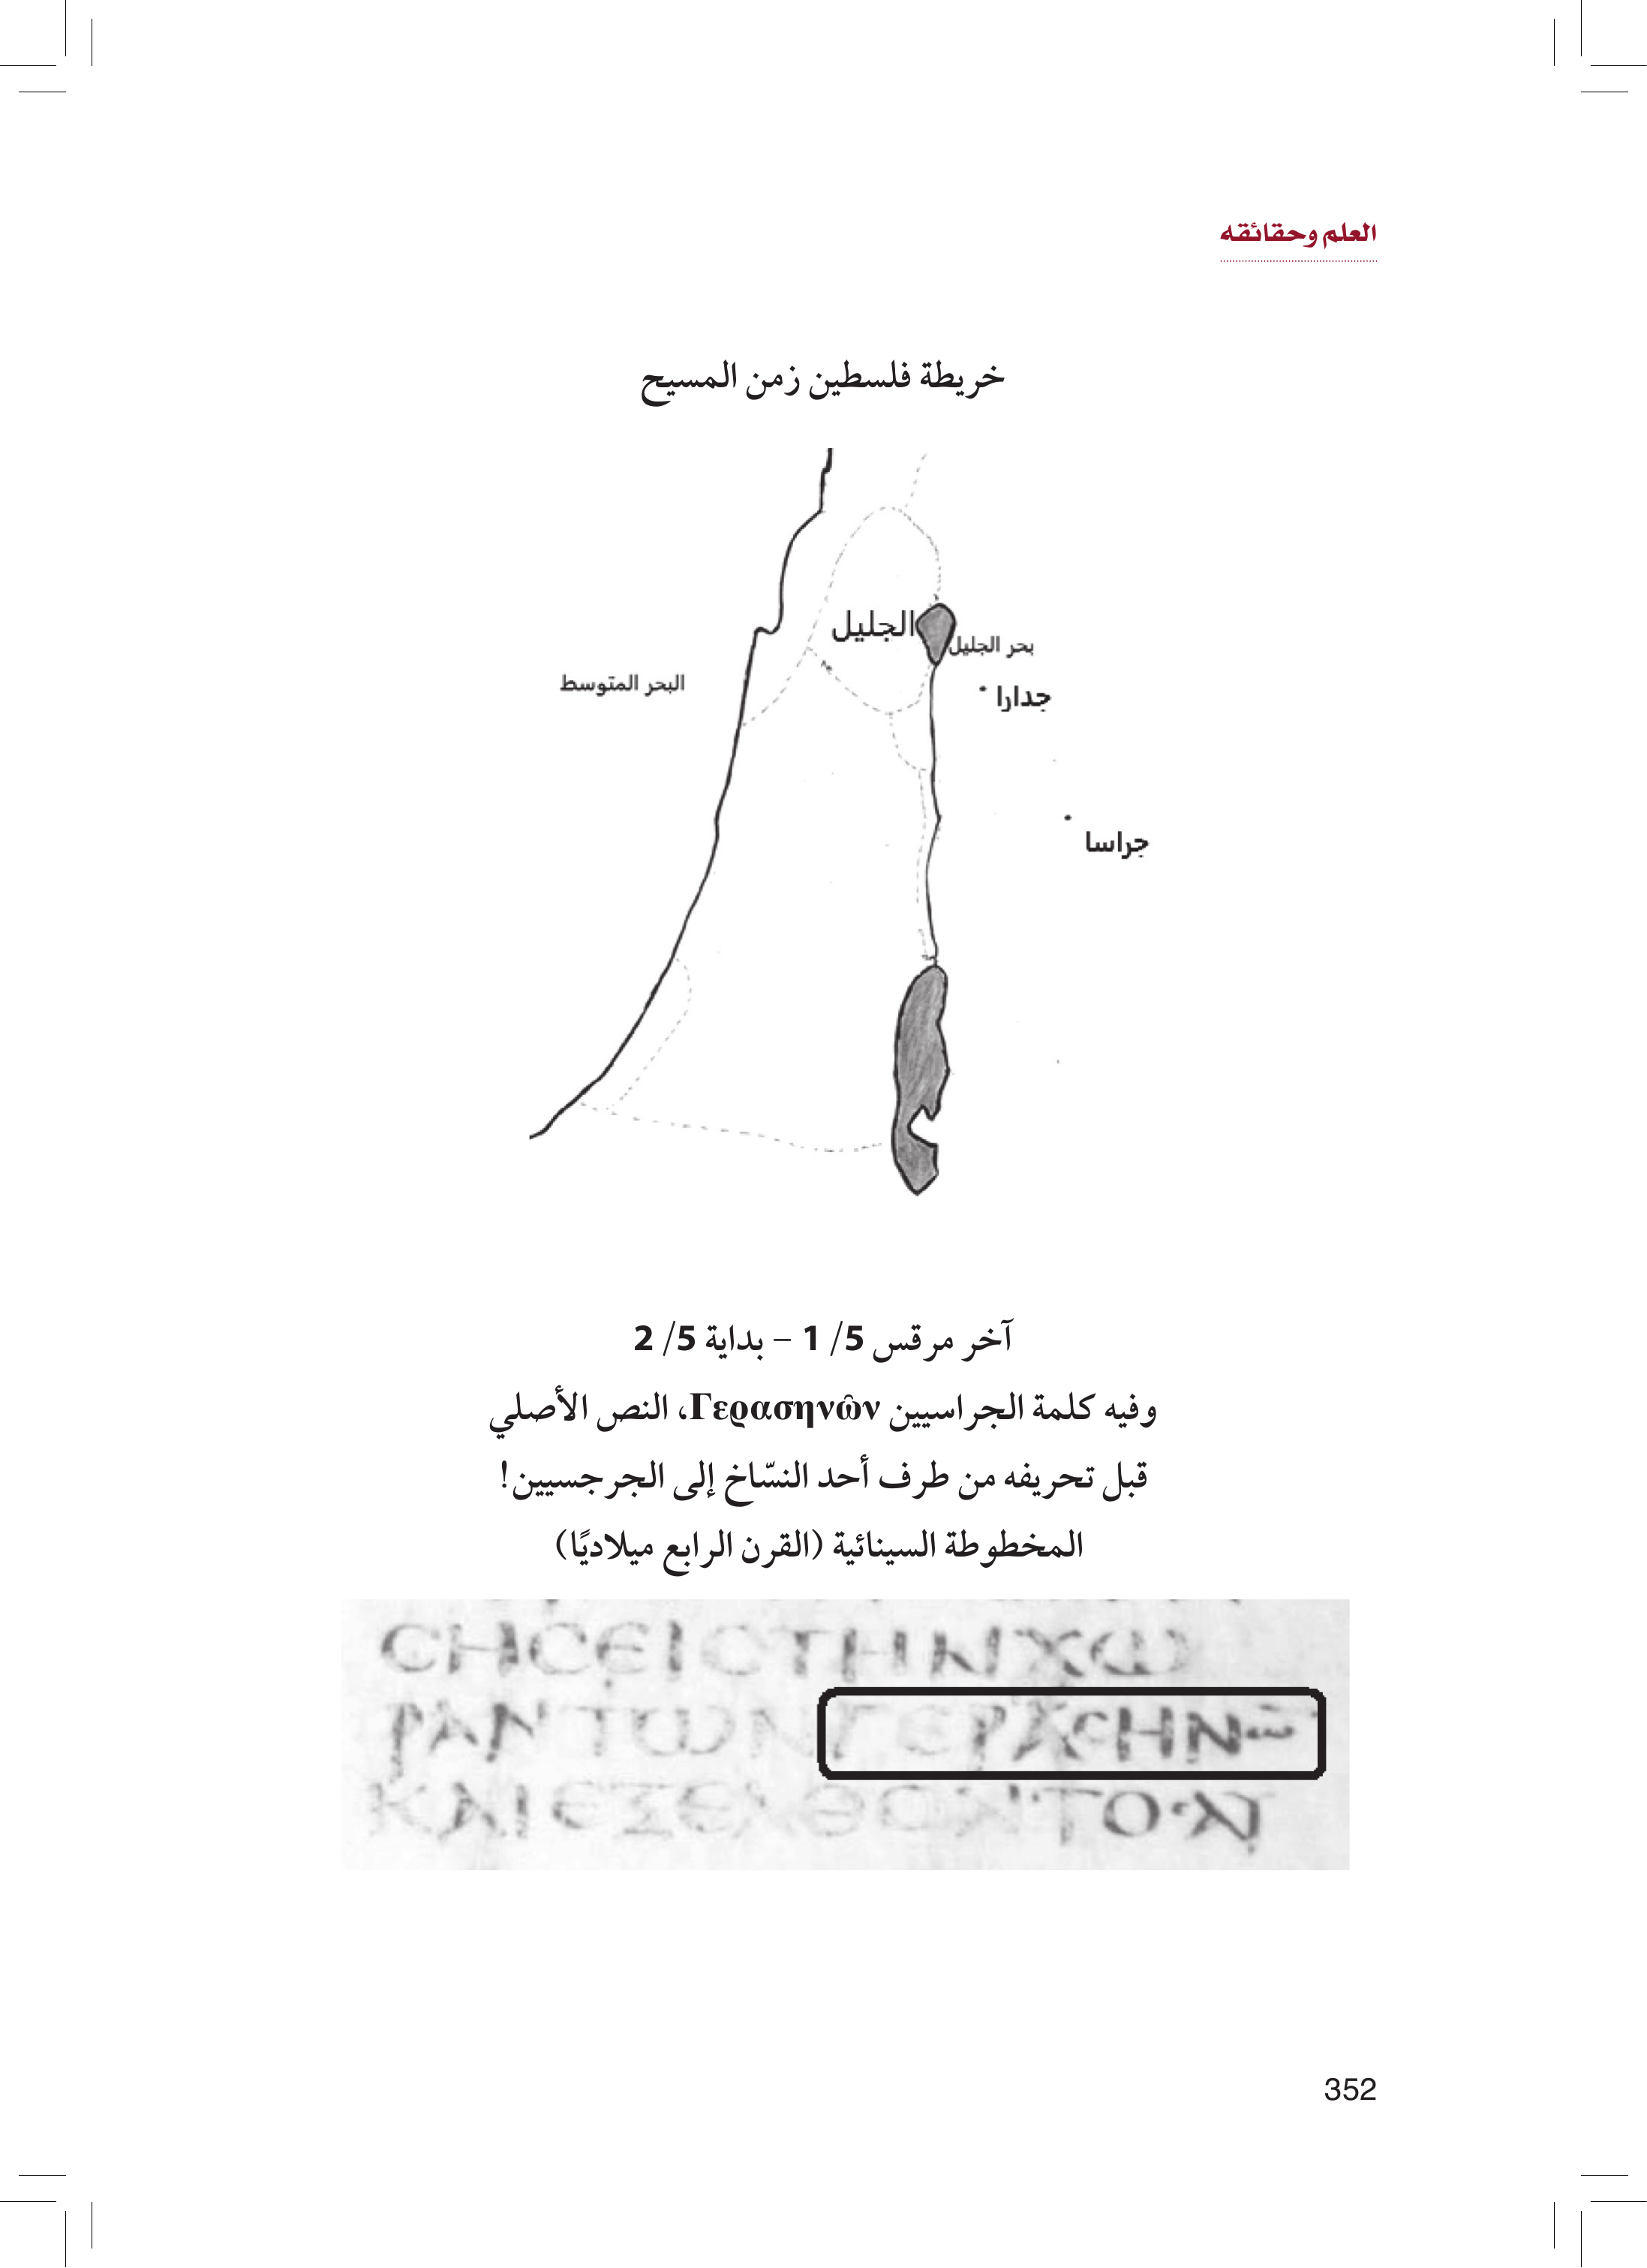 العلم وحقائقه
خريطة فلسطين زمن المسيح
الجليل
بحر الجليل
البحر المتوسط
جدارا
جراسا
آخر مرقس 5/ 1 – بداية 5/ 2
وفيه كلمة الجراسيين Γερασηνῶν، النص الأصلي
قبل تحريفه من طرف أحد النسّاخ إلى الجرجسيين!
المخطوطة السينائية (القرن الرابع ميلاديًا)
ϹΗϹΕΙϹΤΗΝΧΩ
ΡΑΝΤΩΝΓΕΡΑϹΗΝω̅
ΚΑΙΕΞΕΛΘΟΝΤΟΝ
352